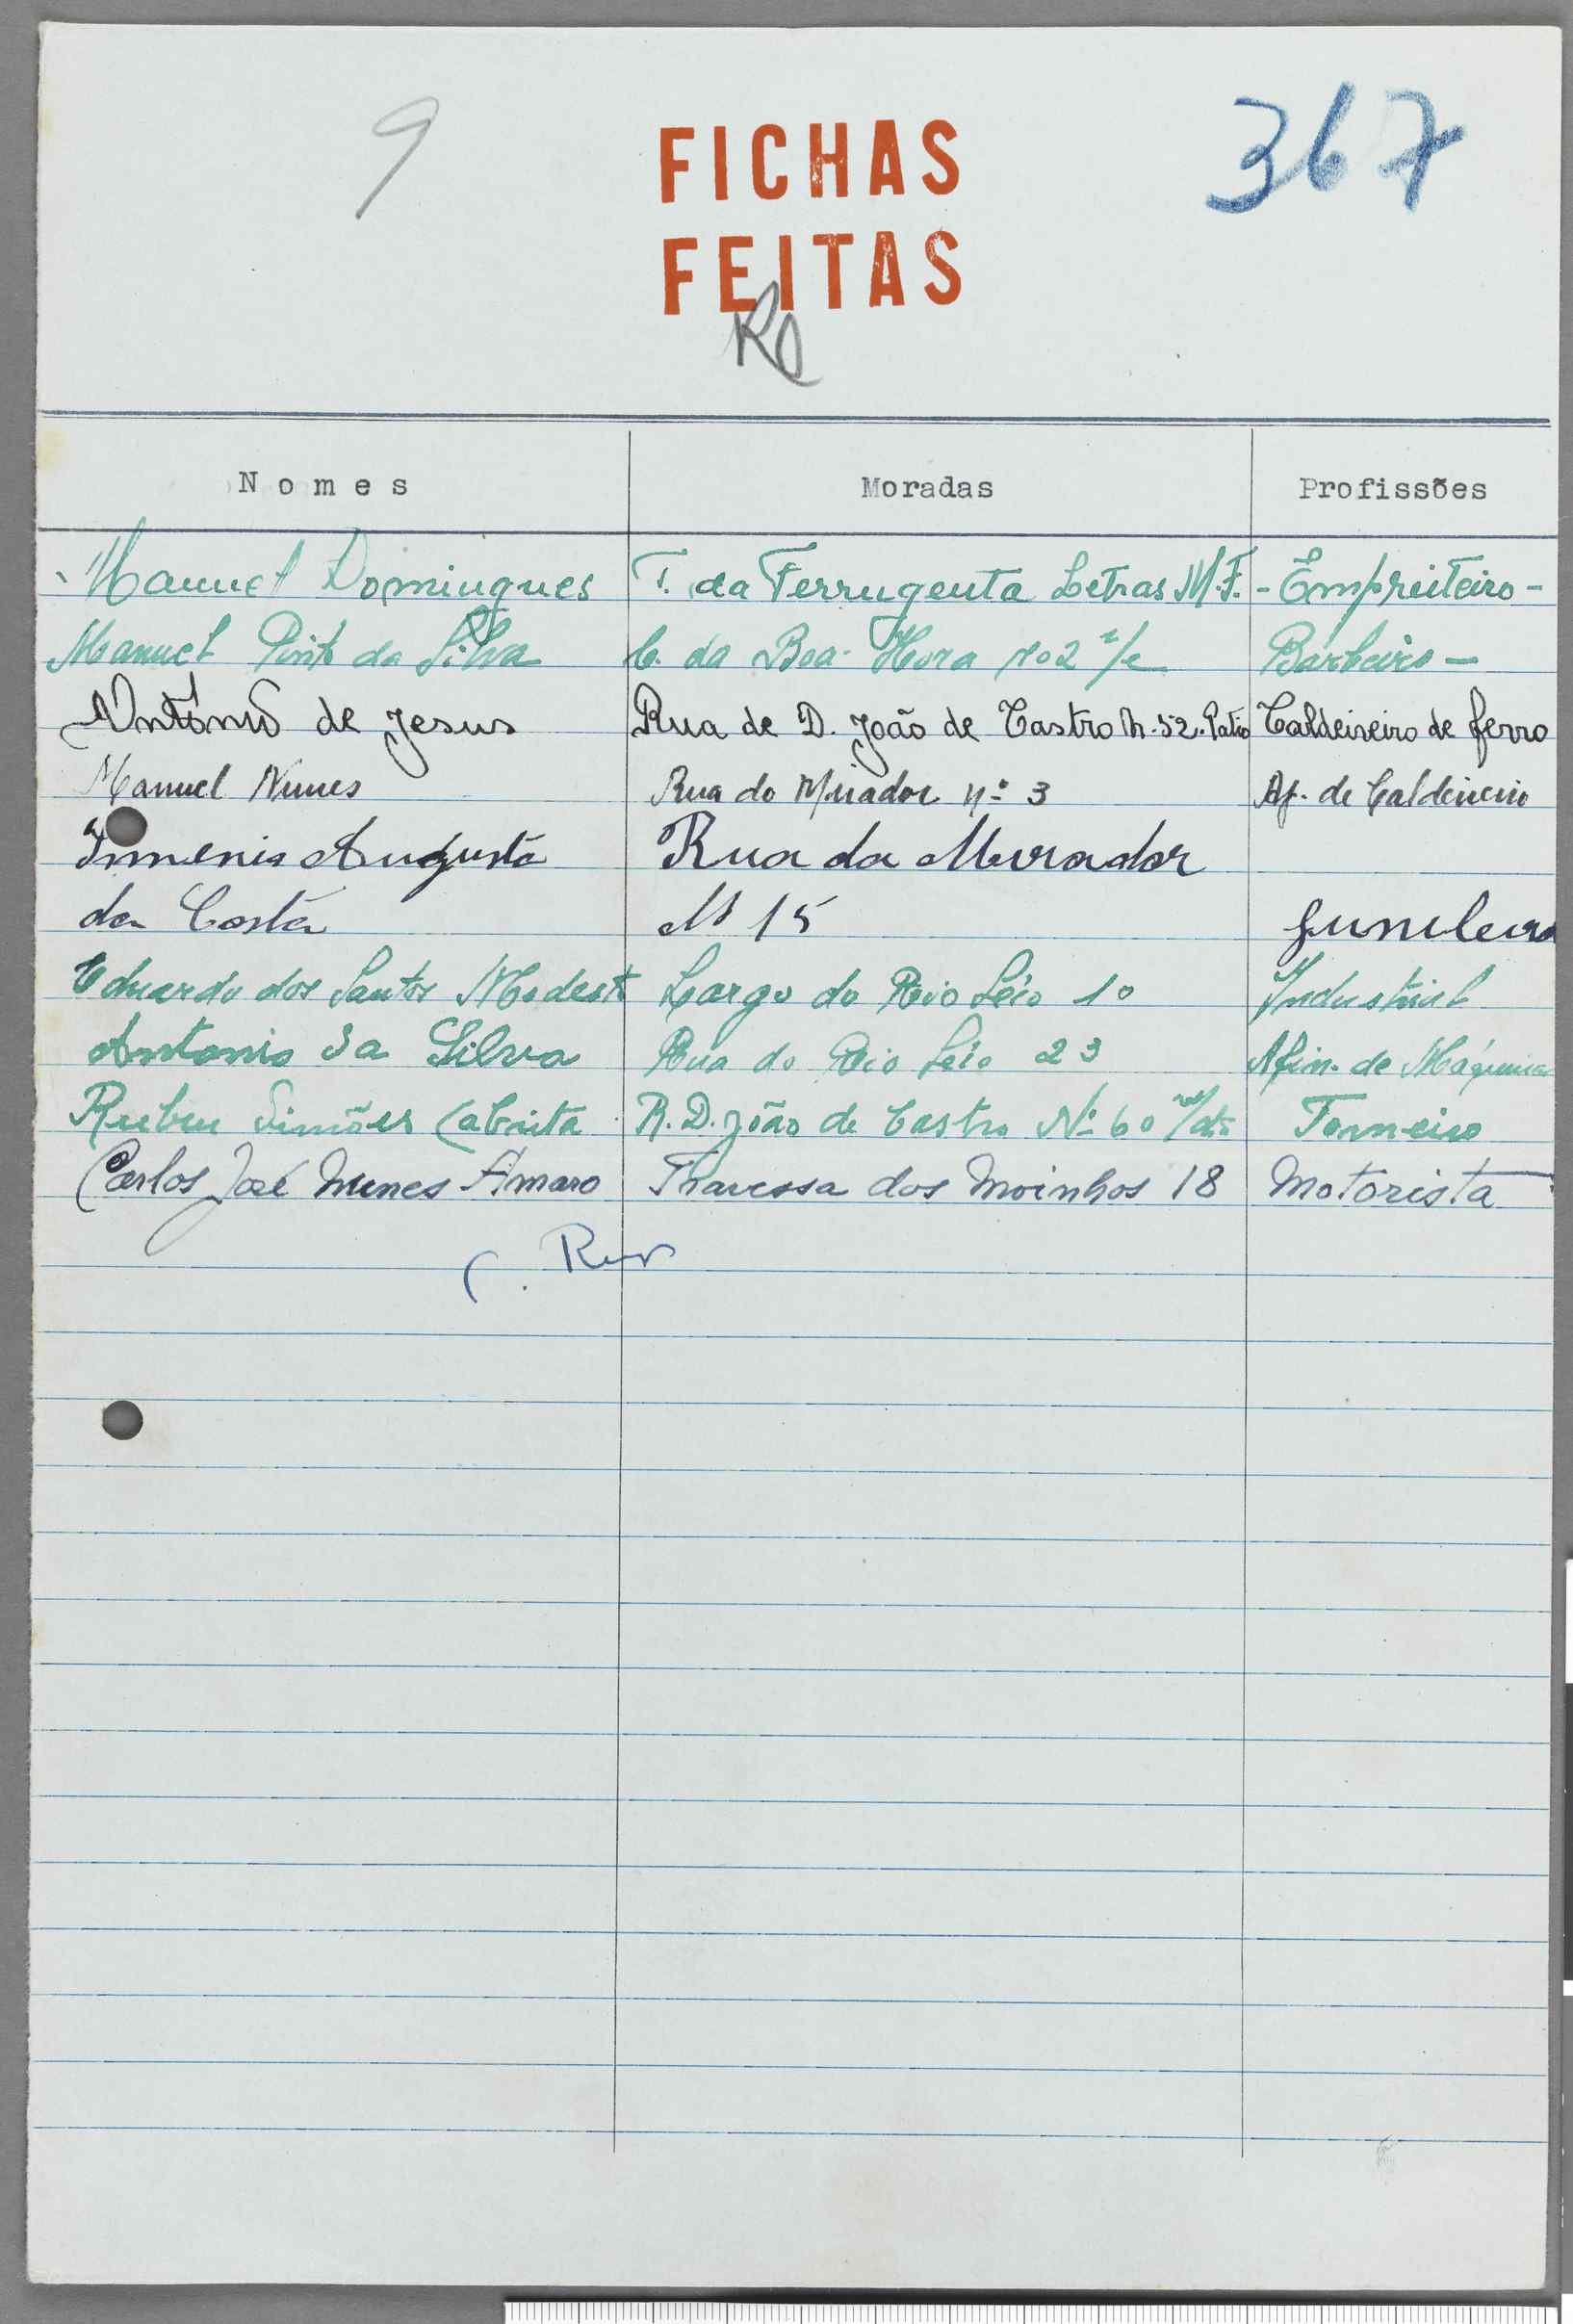 9
367
FICHAS
FEITAS
Nomes Moradas Profissões
Manuel Domingues T. da Ferrugenta Letras M.F. - Empreiteiro -
Manuel Pinto da Silva C. da Boa-Hora 102 r/c Barbeiro -
António de Jesus Rua de D. João de Castro N. 52. Patio Caldeireiro de ferro
Manuel Nunes Rua do Mirador nº 3 Aj. de Caldeireiro
Augusto Rua da Mirador
da Costa Nº 15 funileiro
Eduardo dos Santos Modesto Largo do Rio Sêco 10 Industrial
Antonio da Silva Rua do Rio Sêco 23 Afin. de Máquinas
Ruben Simões Cabrita R. D. João de Castro Nº 60 Torneiro
Carlos José Nunes Amaro Travessa dos Moinhos 18 Motorista